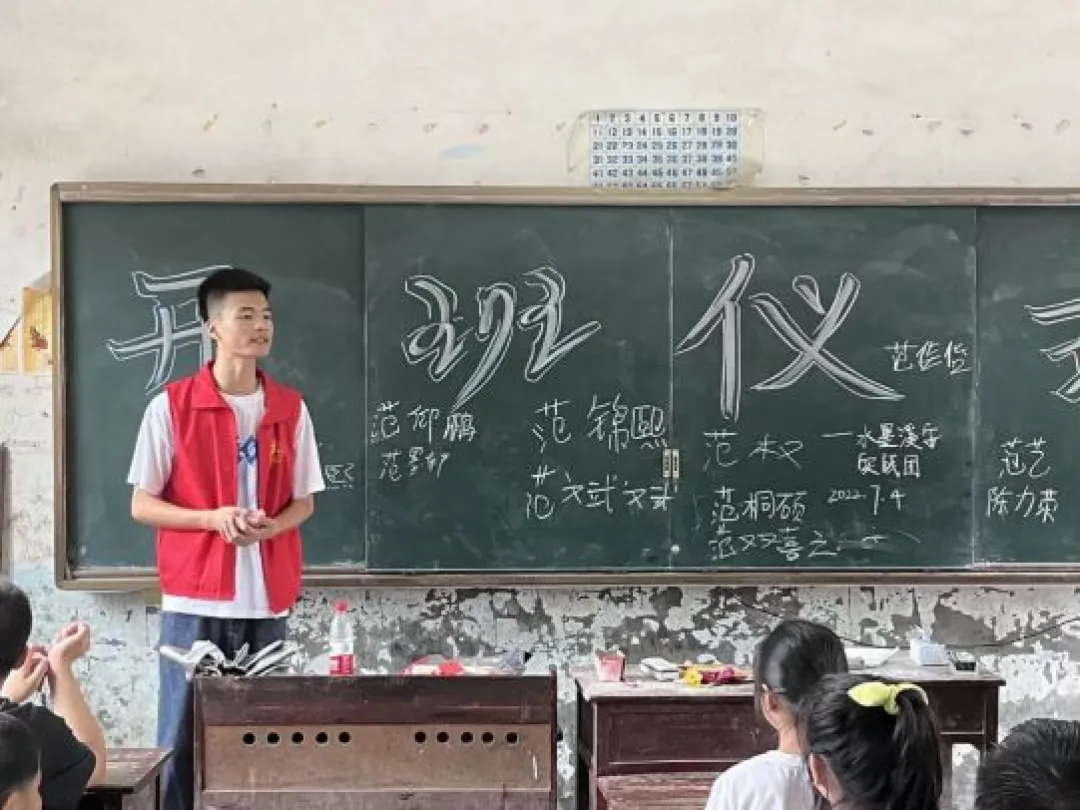 开班仪
范佳佳
范仰鹏
范锦熙
范文斌文斌
范权
范桐硕
范双喜
一水墨溪乐
实践团
2022.7.4
范艺
陈力荣
1 2 3 4 5 6 7 8 9 10
11 12 13 14 15 16 17 18 19 20
21 22 23 24 25 26 27 28 29 30
31 32 33 34 35 36 37 38 39
41 42 43 44 45 46 47 48 49